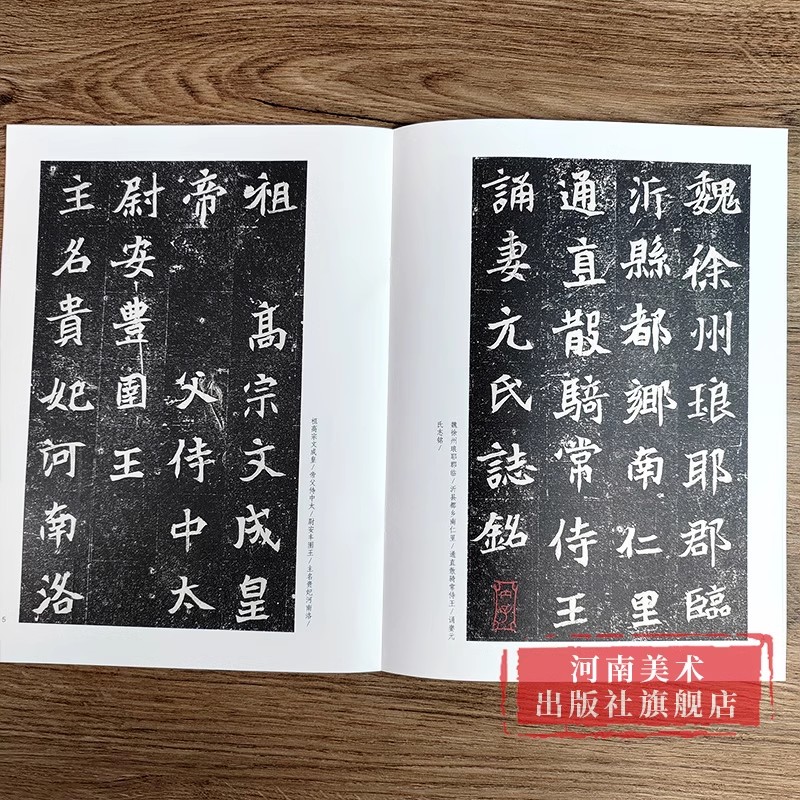 魏徐州琅耶郡臨
沂縣都鄉南仁里
通直散騎常侍王
誦妻元氏誌銘
魏徐州琅耶郡临/沂县都乡南仁里/通直散骑常侍王/诵妻元
氏志铭/
祖 高宗文成皇
帝 父侍中太
尉安豐圉王
主名貴妃河南洛
祖高宗文成皇/帝父侍中太/尉安丰圉王/主名贵妃河南洛/
5
河南美术
出版社旗舰店